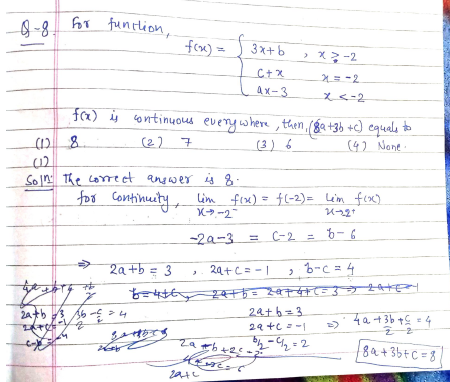 Q-8. For function,
f(x) = { 3x+b , x > -2
c+x x = -2
ax-3 x < -2
f(x) is continuous everywhere, then, (8a+3b+c) equals to
(1) 8 (2) 7 (3) 6 (4) None.
(1)
Soln: The correct answer is 8.
for continuity, lim f(x) = f(-2) = lim f(x)
x→-2⁻ x→2⁺
-2a-3 = c-2 = b-6
⇒ 2a+b = 3 , 2a+c = -1 , b-c = 4
2a+b = 3
2a+c = -1 ⇒ 4a + 3b/2 + c/2 = 4
b/2 - c/2 = 2
8a+3b+c = 8